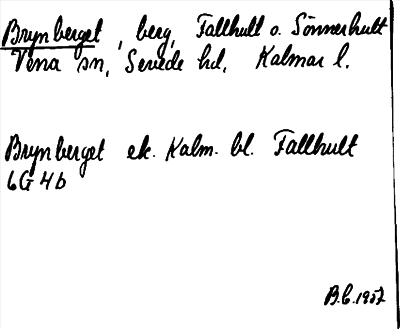 Brynberget, berg, Fallhult o. Sönnerhult
Vena sn, Sevede hd, Kalmar l.
Brynberget ek. Kalm. bl. Fallhult
6G 4b
B.C. 1957